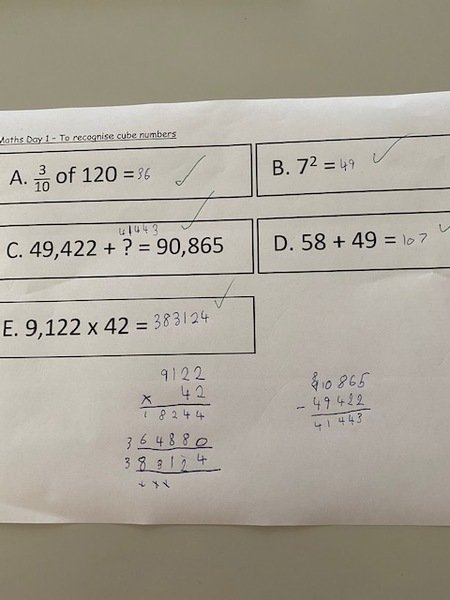 Maths Day 1 – To recognise cube numbers
A. 3/10 of 120 = 36
B. 7² = 49
41443
C. 49,422 + ? = 90,865
D. 58 + 49 = 107
E. 9,122 x 42 = 383124
9122
x 42
18244
364880
383124
810865
- 49422
41443